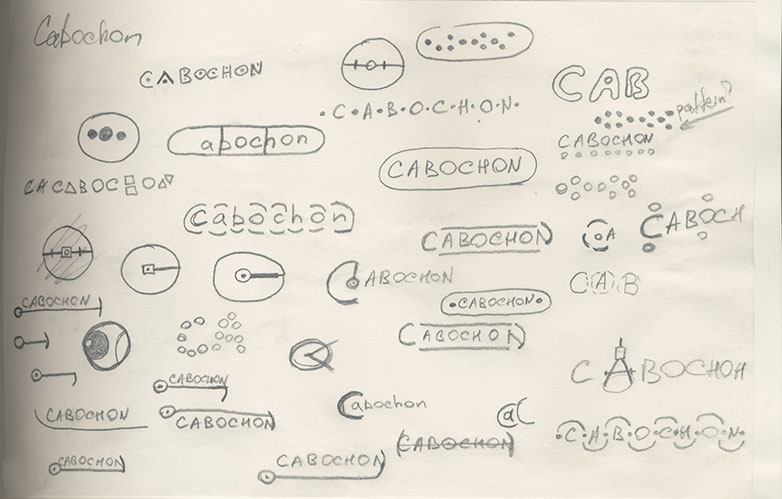 Cabochon
CABOCHON
CAB
·C·A·B·O·C·H·O·N·
pattern?
abochon
CABOCHON
CABOCHON
Cabochon
CABOCH
CABOCHON
OA
CABOCHON
CAB
CABOCHON
•CABOCHON•
CABOCHON
CABOCHON
CABOCHON
Cabochon
CABOCHON
CABOCHON
a(
CABOCHON
·C·A·B·O·C·H·O·N·
CABOCHON
CABOCHON